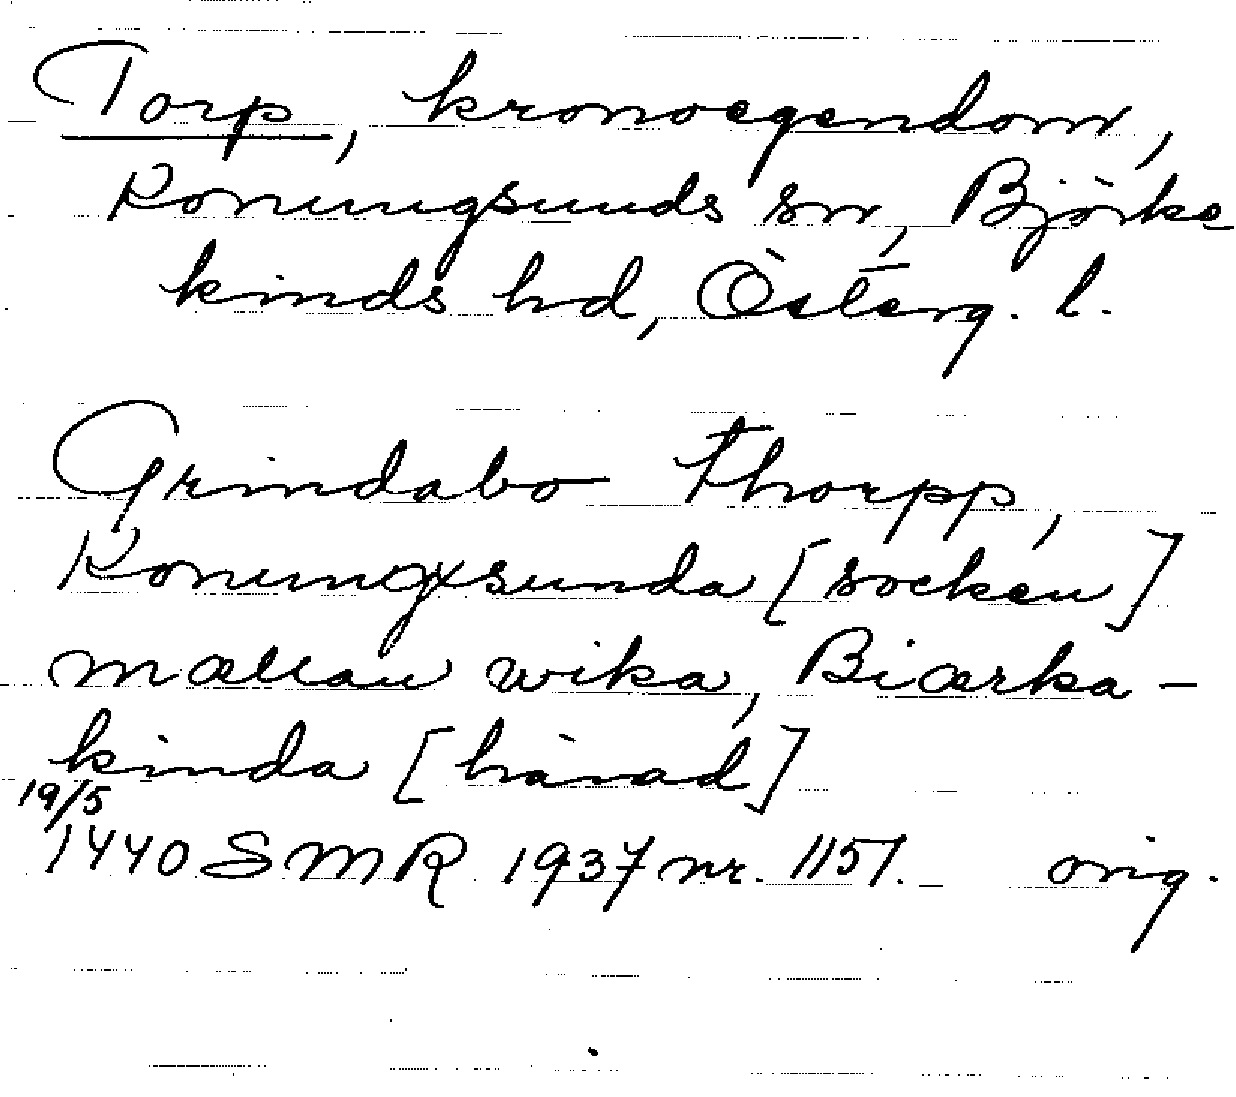 Torp, kronoegendom,
Konungsunds sn, Björke
kinds hd, Österg. l.
Grindabo Thorpp,
Konungxsunda [socken]
mællan wika, Biærka-
kinda [härad]
19/5
1440 SMR 1937 nr. 1151. orig.